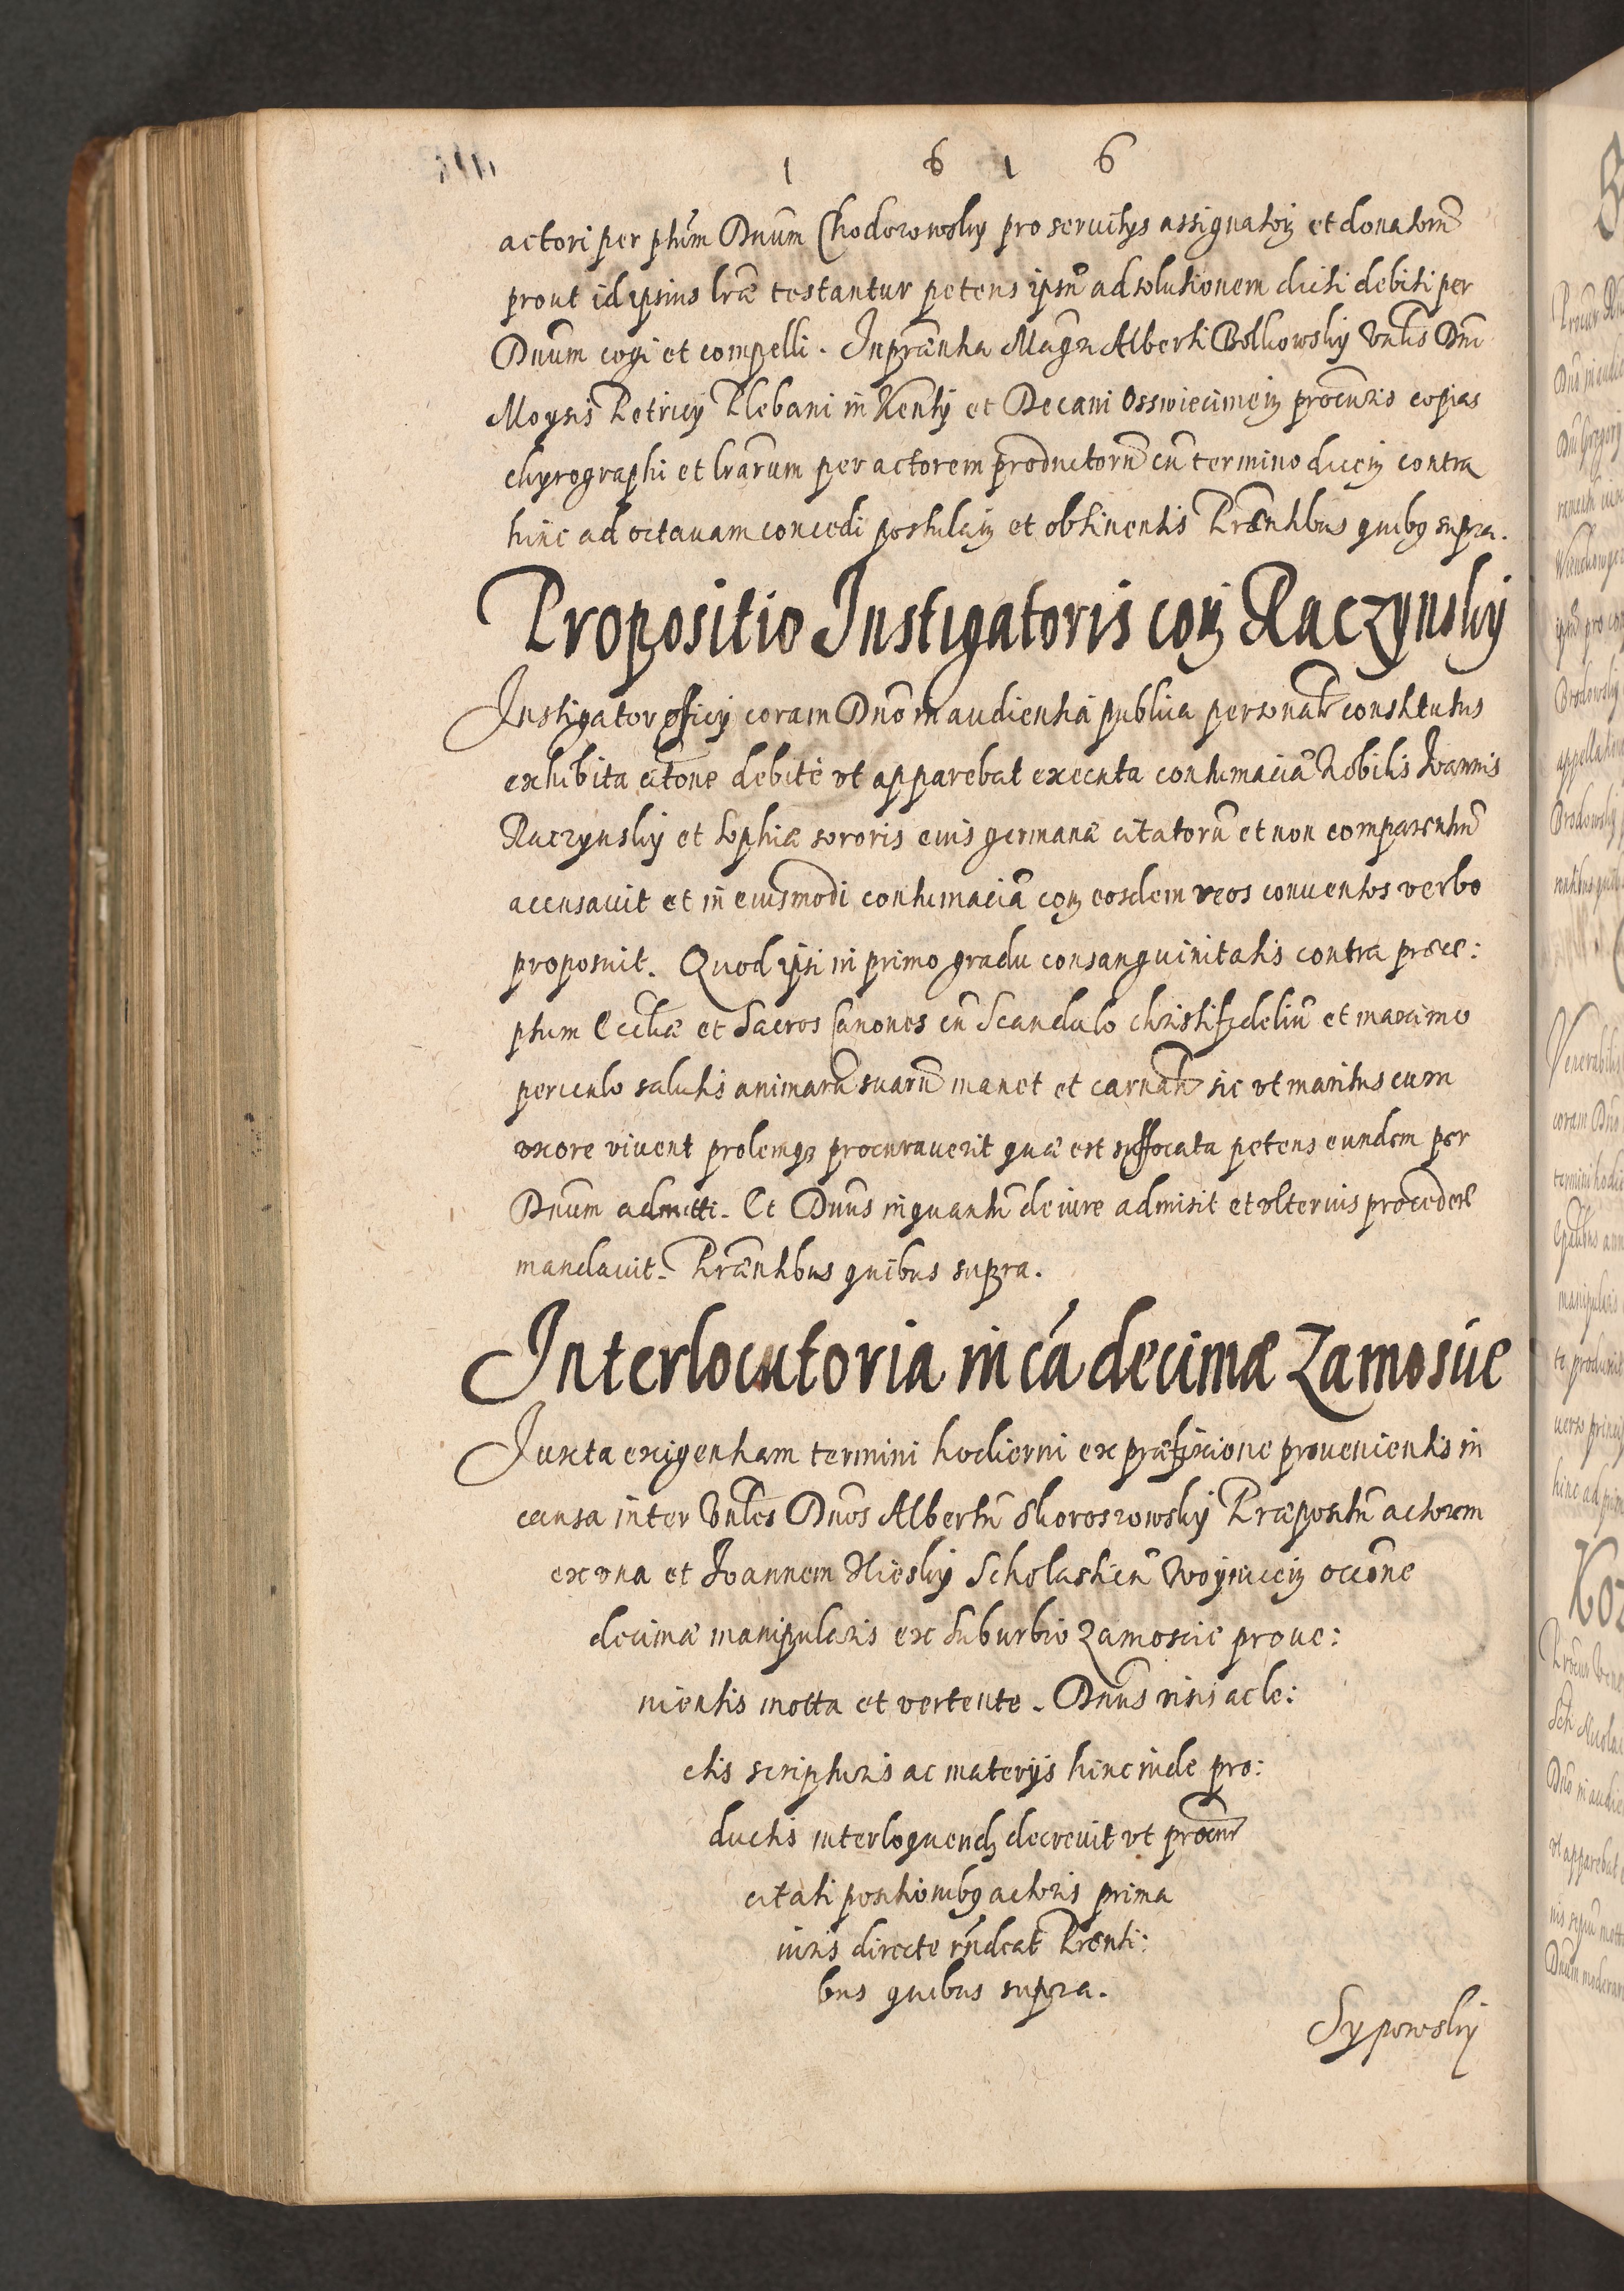 1 6 1 6
actori per phm̃ Dnũm Chodorowsky pro servitys assignatoꝝ et donatorũ
prout id ipsius lr̃æ testantur petens ipsũ ad solutionem dicti debiti per
Dnũm cogi et compelli. In præñtia Mag̃ri Alberti Bolkowsky Vñlis Dnĩ
Moysis Petricy Plebani in Kenty et Decani Osswiecimeñ procuris copias
chyrographi et lr̃arum per actorem productorũ cũ termino diceñ contra
hinc ad octavam concedi postulañ et obtinentis Præñtibus quibꝫ supra.
Propositio Instigatoris coñ Raczynsky
Instigator officy coram Dnõ in audientia publica personalr̃ constitutus
exhibita citõne debite vt apparebat executa contumaciã Nobilis Joannis
Raczynsky et Sophiæ sororis eius germanæ citatorũ et non comparentiũ
accusavit et in eiusmodi contumaciã coñ eosdem reos conventos verbo
proposuit. Quod ipsi in primo gradu consanguinitatis contra præce:
ptum Eccliæ et Sacros Canones cũ Scandalo christifideliũ et maximo
periculo salutis animarũ suarũ manet et carnalr̃ sic vt maritus cum
vxore vivent prolemqꝫ procuraverit quæ est suffocata petens eundem per
Dnũm admitti. Et Dnũs in quantũ de iure admisit et vlterius procedere
mandavit. Præñtibus quibus supra.
Interlocutoria in cã decimæ Zamoscie
Juxta exigentiam termini hodierni ex præfixione provenientis in
causa inter Vnles Dnõs Albertũ Skoroszowsky Præpositũ actorem
ex vna et Joannem Kiesky Scholasticũ Woyniceñ occõne
decimæ manipularis ex Suburbio Zamoscie prove:
nientis motta et vertente. Dnũs visis ac le:
ctis scripturis ac materijs hinc inde pro:
ductis interloquendo decrevit vt procur̃
citati positionibꝫ actoris prima
iuris directe rñdeat Præñti:
bus quibus supra.
Sypowsky